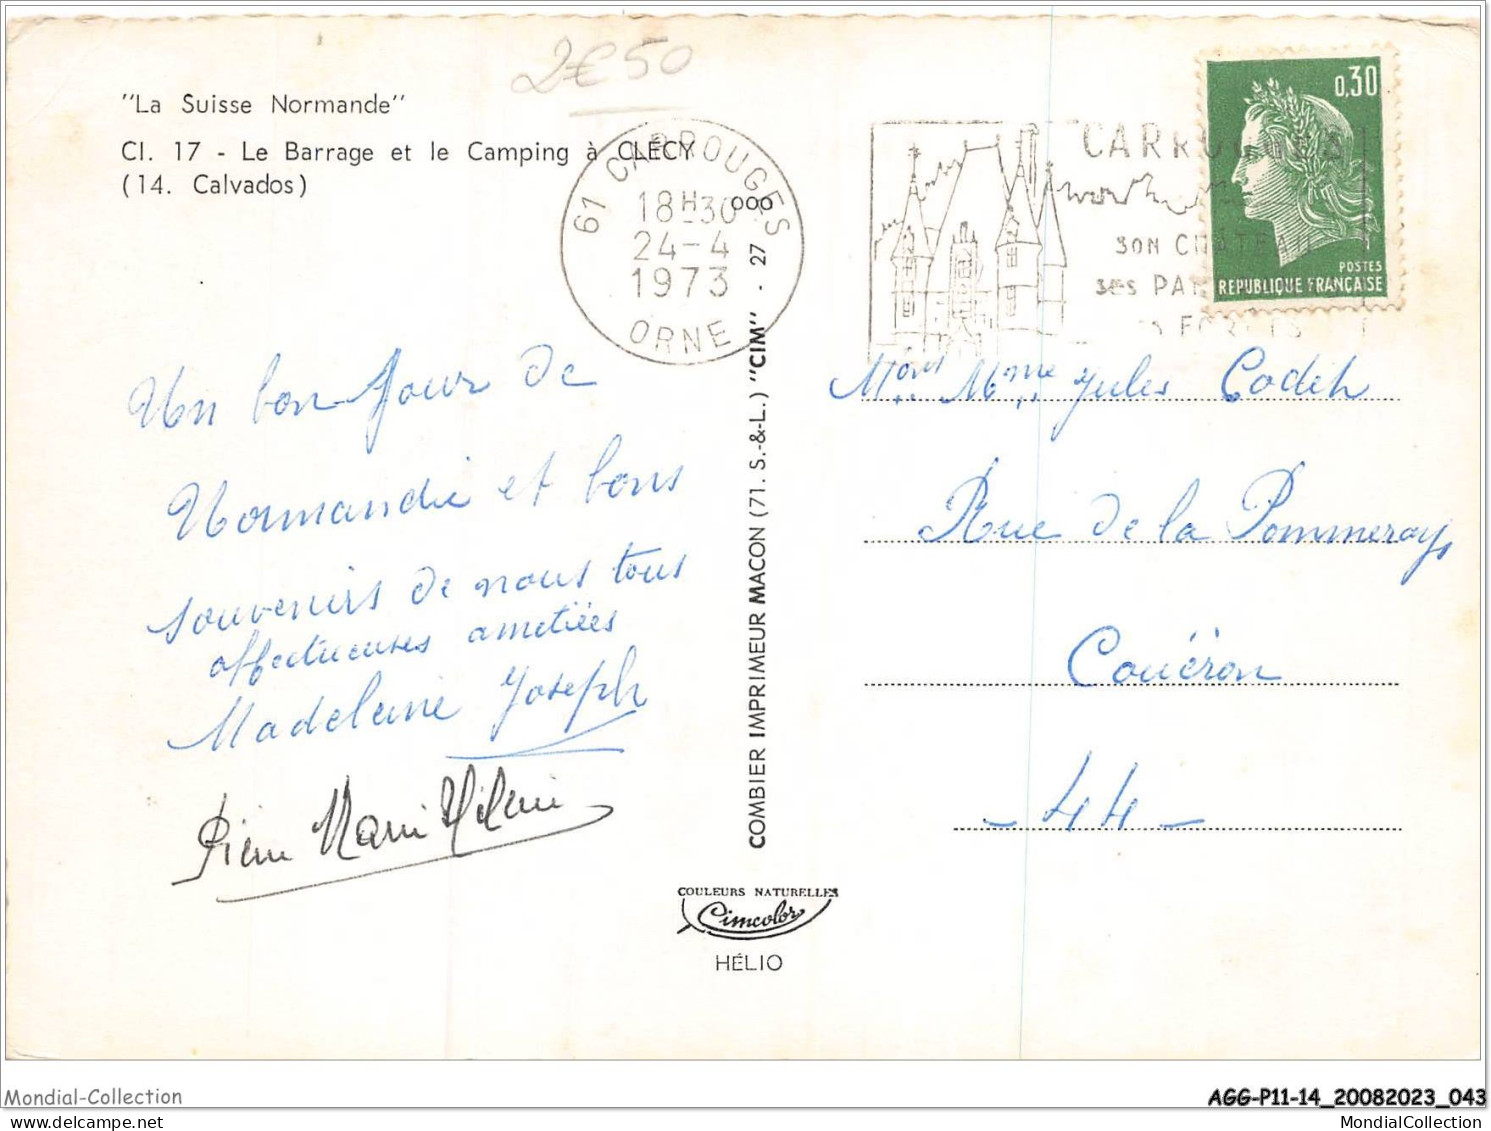 2€50
"La Suisse Normande"
Cl. 17 - Le Barrage et le Camping à CLÉCY
(14. Calvados)
61 CARROUGES
18H30
24-4
1973
ORNE
000
CARROUGES
SON CHÂTEAU
SES PAR
FORETS
0,30
POSTES
REPUBLIQUE FRANÇAISE
Un bon Jour de
Normandie et bons
souvenirs de nous tous
affectueuses ametiées
Madeleine Joseph
Pierre Marie Hélène
COMBIER IMPRIMEUR MACON (71. S.-&-L.) "CIM" . 27
Mons Mme Jules Codet
Rue de la Pommeray
Couëron
- 44 -
COULEURS NATURELLES
Cimcolor
HÉLIO
Mondial-Collection
AGG-P11-14_20082023_043
MondialCollection